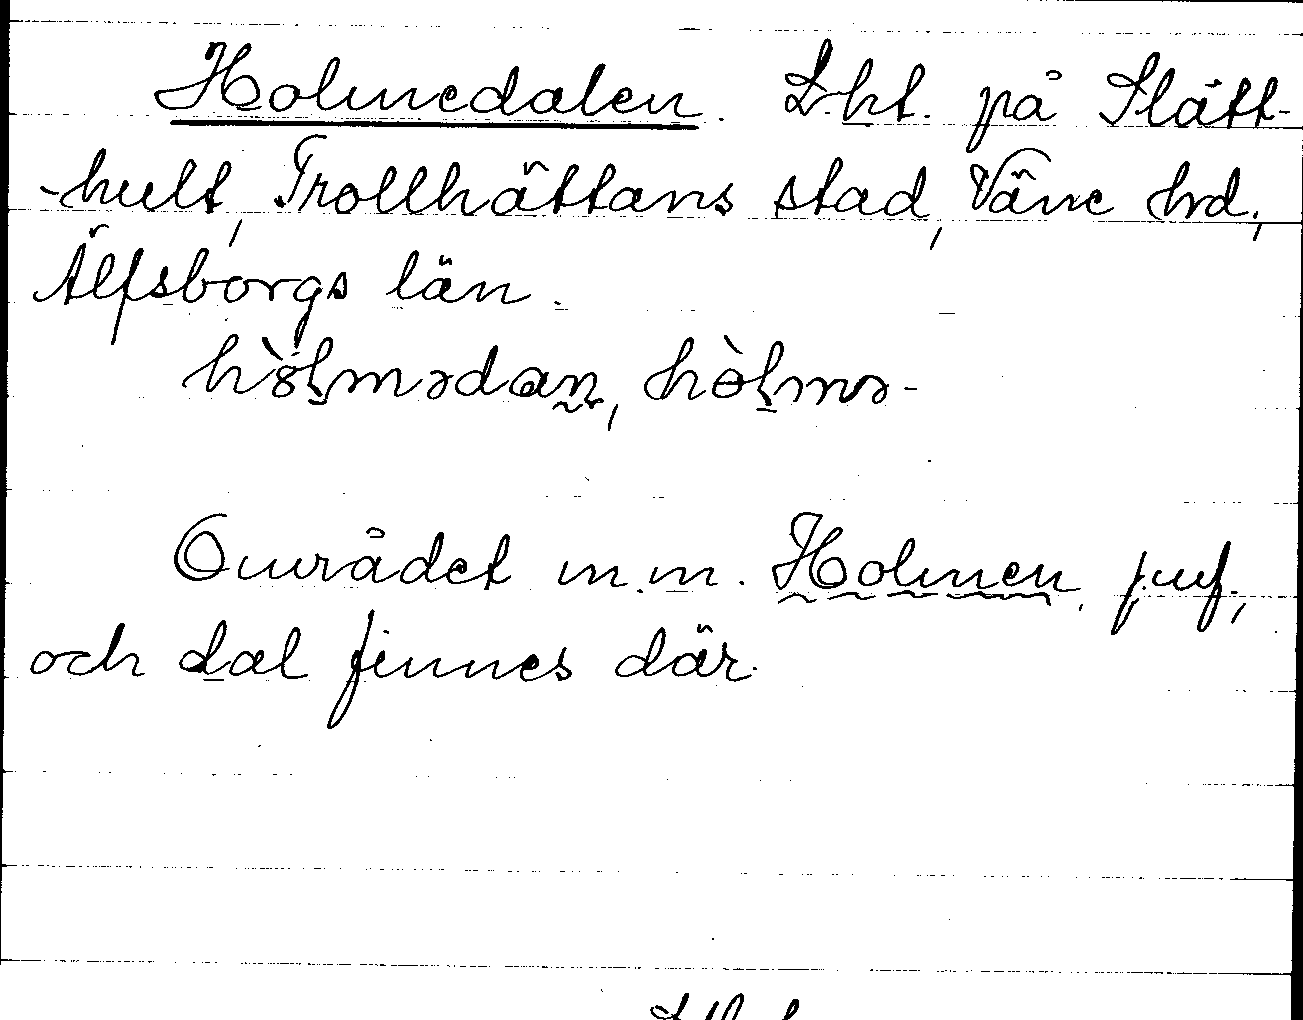 Holmedalen. Lht. på Slätt-
-hult, Trollhättans stad, Väne hrd,
Älfsborgs län.
hòłmədan, hòłmə-
Området m. m. Holmen, juf,
och dal finnes där.